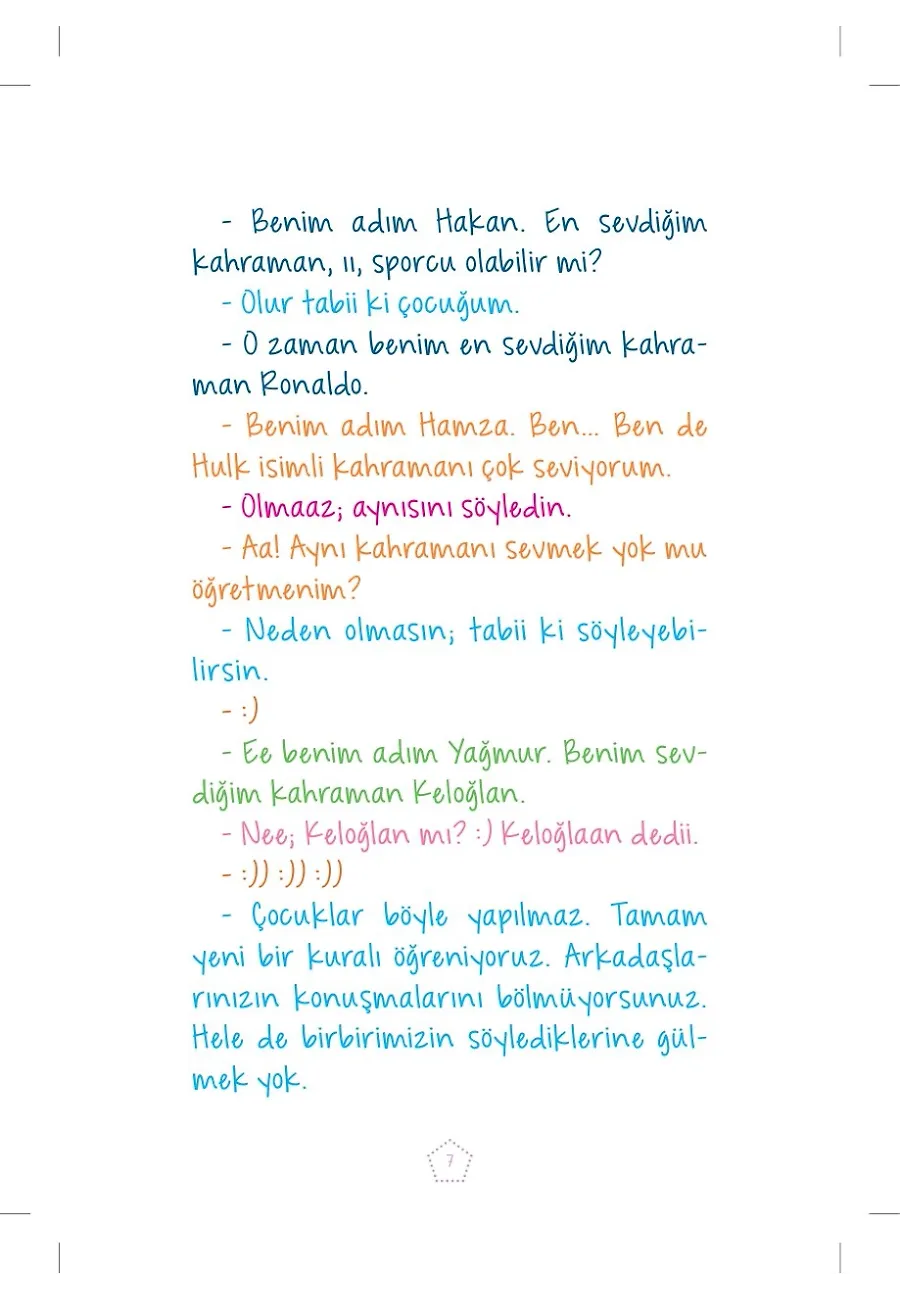 - Benim adım Hakan. En sevdiğim
kahraman, ıı, sporcu olabilir mi?
- Olur tabii ki çocuğum.
- O zaman benim en sevdiğim kahra-
man Ronaldo.
- Benim adım Hamza. Ben... Ben de
Hulk isimli kahramanı çok seviyorum.
- Olmaaz; aynısını söyledin.
- Aa! Aynı kahramanı sevmek yok mu
öğretmenim?
- Neden olmasın; tabii ki söyleyebi-
lirsin.
- :)
- Ee benim adım Yağmur. Benim sev-
diğim kahraman Keloğlan.
- Nee; Keloğlan mı? :) Keloğlaan dedii.
- :)) :)) :))
- Çocuklar böyle yapılmaz. Tamam
yeni bir kuralı öğreniyoruz. Arkadaşla-
rınızın konuşmalarını bölmüyorsunuz.
Hele de birbirimizin söylediklerine gül-
mek yok.
7